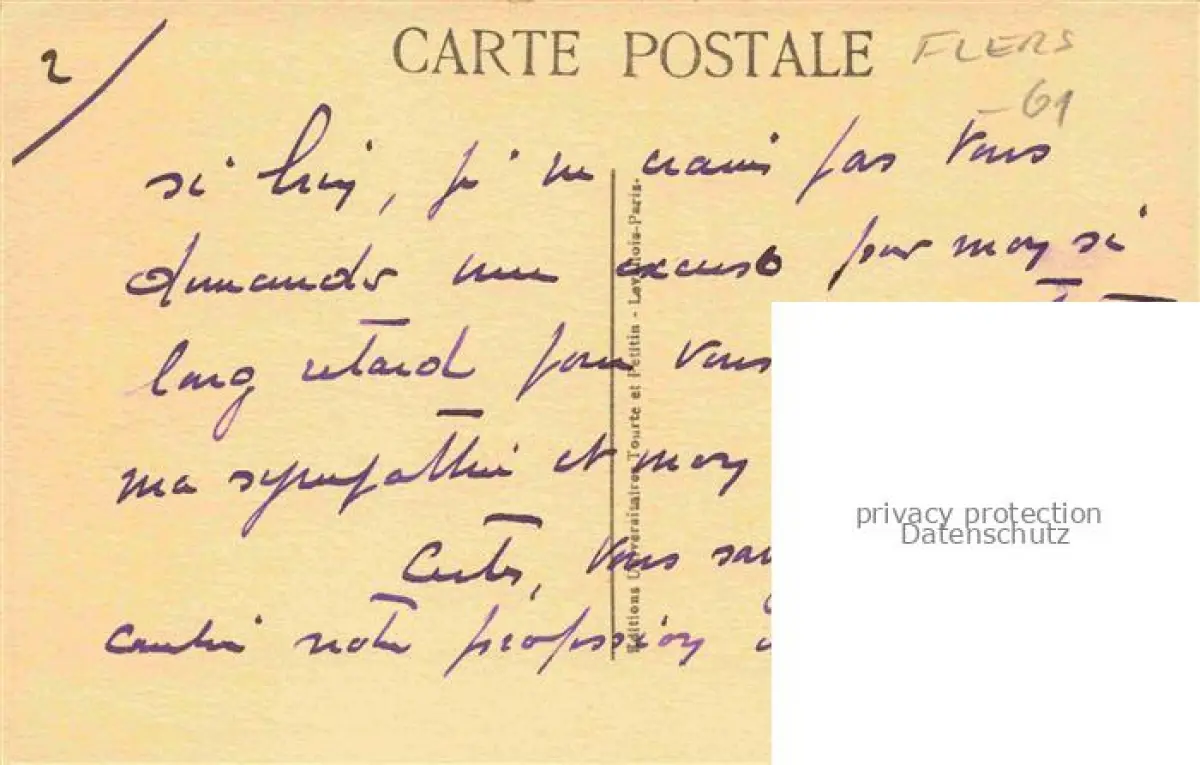 2/
CARTE POSTALE
FLERS
- 61
si bien, je ne crains pas vous
demander une excuse pour mon si
long retard pour vous
ma sympathie et mon
Certes, vous sav
combien notre profession
Editions Universitaires, Tourte et Petitin - Levallois-Paris-
privacy protection
Datenschutz